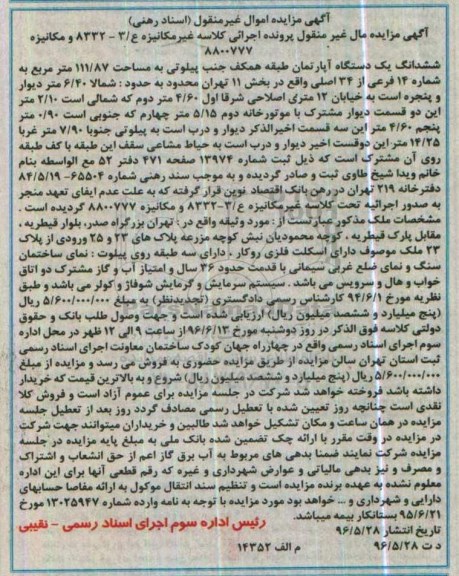 آگهی مزایده اموال غیرمنقول (اسناد رهنی)
آگهی مزایده مال غیر منقول پرونده اجرائی کلاسه غیرمکانیزه ع/۳ - ۸۳۳۲ و مکانیزه
۸۸۰۰۷۷۷
ششدانگ یک دستگاه آپارتمان طبقه همکف جنب پیلوتی به مساحت ۱۱۱/۸۷ متر مربع به
شماره ۱۴ فرعی از ۳۴ اصلی واقع در بخش ۱۱ تهران محدود به حدود : شمالا ۶/۴۰ متر دیوار
و پنجره است به خیابان ۱۲ متری اصلاحی شرقا اول ۴/۶۰ متر دوم که شمالی است ۲/۱۰ متر
این دو قسمت دیوار مشترک با موتورخانه دوم ۵/۱۵ متر چهارم که جنوبی است ۰/۹۰ متر
پنجم ۴/۶۰ متر این سه قسمت اخیرالذکر دیوار و درب است به پیلوتی جنوبا ۷/۹۰ متر غربا
۱۴/۲۵ متر این دوقست اخیر دیوار و درب است به حیاط مشاعی سقف این طبقه با کف طبقه
روی آن مشترک است که ذیل ثبت شماره ۱۳۹۷۴ صفحه ۴۷۱ دفتر ۵۲ مع الواسطه بنام
خانم ویدا شیخ طاوی ثبت و صادر گردیده و به موجب سند رهنی شماره ۶۵۵۰۴- ۸۴/۵/۱۹
دفترخانه ۲۱۹ تهران در رهن بانک اقتصاد نوین قرار گرفته که به علت عدم ایفای تعهد منجر
به صدور اجرائیه تحت کلاسه غیرمکانیزه ع/۳-۸۳۳۲ و مکانیزه ۸۸۰۰۷۷۷ گردیده است .
مشخصات ملک مذکور عبارتست از : مورد وثیقه واقع در : تهران بزرگراه صدر، بلوار قیطریه ،
مقابل پارک قیطریه ، کوچه محمودیان نبش کوچه مزرعه پلاک های ۲۳ و ۲۵ ورودی از پلاک
۲۳ ملک موصوف دارای اسکلت فلزی روکار ، دارای سه طبقه روی پیلوت : نمای ساختمان
سنگ و نمای ضلع غربی سیمانی با قدمت حدود ۳۶ سال و امتیاز آب و گاز مشترک دو اتاق
خواب و هال و سرویس می باشد . سیستم سرمایش و گرمایش شوفاژ و کولر می باشد و طبق
نظریه مورخ ۹۴/۶/۱ کارشناس رسمی دادگستری (تجدیدنظر) به مبلغ ۵/۶۰۰/۰۰۰/۰۰۰ ریال
(پنج میلیارد و ششصد میلیون ریال) ارزیابی شده است و جهت وصول طلب بانک و حقوق
دولتی کلاسه فوق الذکر در روز دوشنبه مورخ ۹۶/۶/۱۳ از ساعت ۹ الی ۱۲ ظهر در محل اداره
سوم اجرای اسناد رسمی واقع در چهارراه جهان کودک ساختمان معاونت اجرای اسناد رسمی
ثبت استان تهران سالن مزایده از طریق مزایده حضوری به فروش می رسد و مزایده از مبلغ
۵/۶۰۰/۰۰۰/۰۰۰ ریال (پنج میلیارد و ششصد میلیون ریال) شروع و به بالاترین قیمت که خریدار
داشته باشد فروخته خواهد شد شرکت در جلسه مزایده برای عموم آزاد است و فروش کلا
نقدی است چنانچه روز تعیین شده با تعطیل رسمی مصادف گردد روز بعد از تعطیل جلسه
مزایده در همان ساعت و مکان تشکیل خواهد شد طالبین و خریداران میتوانند جهت شرکت
در مزایده در وقت مقرر با ارائه چک تضمین شده بانک ملی به مبلغ پایه مزایده در جلسه
مزایده شرکت نمایند ضمنا بدهی های مربوط به آب برق گاز اعم از حق انشعاب و اشتراک
و مصرف و نیز بدهی مالیاتی و عوارض شهرداری و غیره که رقم قطعی آنها برای این اداره
معلوم نشده به عهده برنده مزایده است و تنظیم سند انتقال موکول به ارائه مفاصا حسابهای
دارایی و شهرداری و ... خواهد بود مورد مزایده با توجه به نامه وارده شماره ۱۳۰۲۵۹۴۷ مورخ
۹۵/۶/۲۱ بستانکار بیمه میباشد.
رئیس اداره سوم اجرای اسناد رسمی - نقیبی
تاریخ انتشار ۹۶/۵/۲۸
د ت ۹۶/۵/۲۸ م الف ۱۴۳۵۲